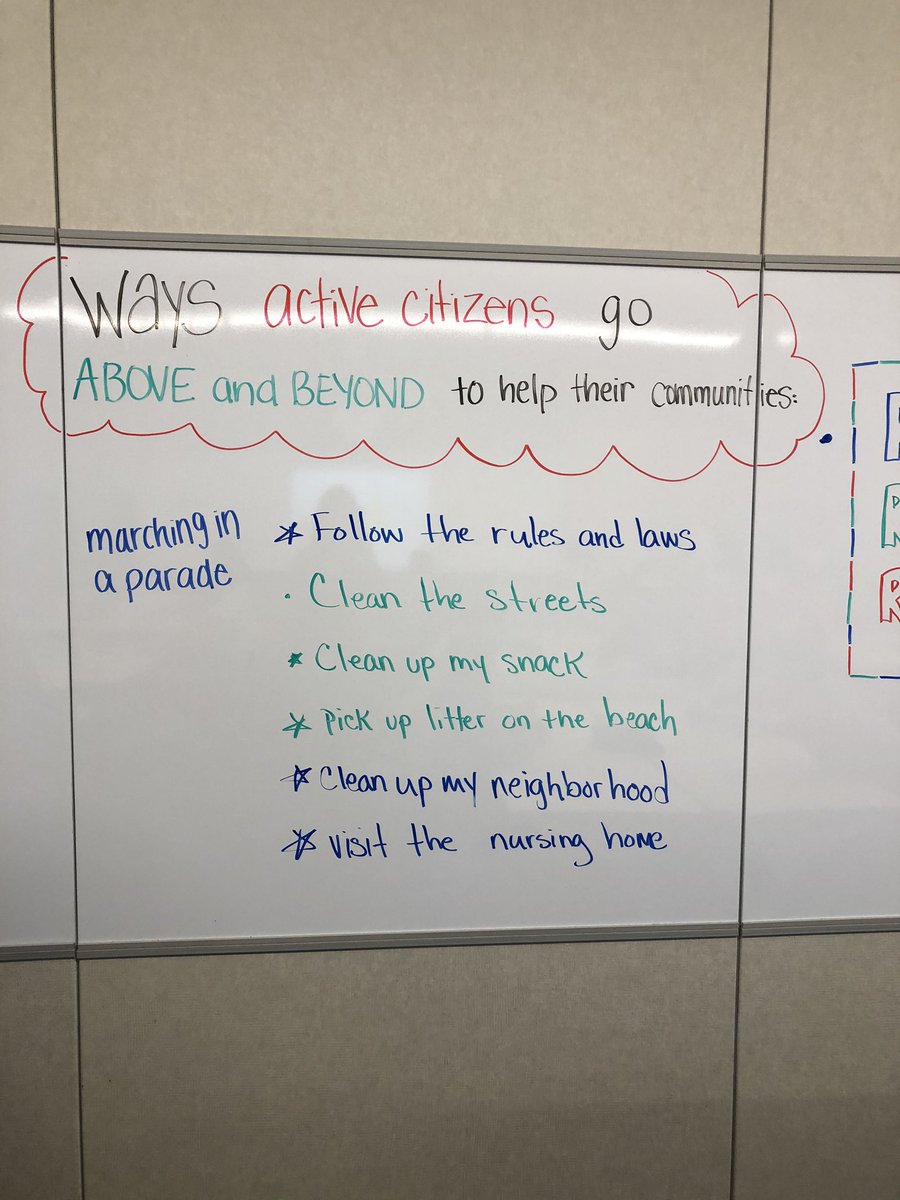 Ways active citizens go
ABOVE and BEYOND to help their communities:
marching in
a parade
* Follow the rules and laws
· Clean the streets
* Clean up my snack
* Pick up litter on the beach
* Clean up my neighborhood
* visit the nursing home